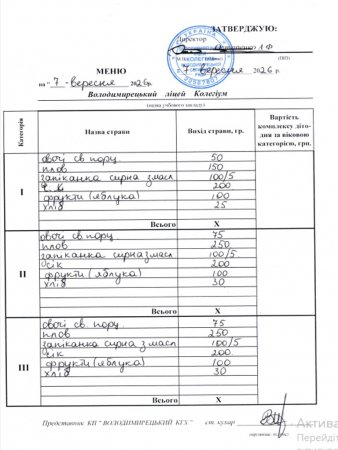 ЗАТВЕРДЖУЮ:
Директор
(ПІП)
МЕНЮ
7 вересня 2026 р.
на "7" вересня 2026р.
Володимирецький ліцей Колегіум
(назва учбового закладу)
Категорія
Назва страви
Вихід страви, гр.
Вартість комплексу діто-дня за віковою категорією, грн.
I
овочі св. порц. 50
плов 150
запіканка сирна з масл 100/5
200
фрукти (яблука) 100
хліб 25
Всього X
II
овочі св. порц. 75
плов 250
запіканка сирна з масл 100/5
сік 200
фрукти (яблука) 100
хліб 30
Всього X
III
овочі св. порц. 75
плов 250
запіканка сирна з масл 100/5
сік 200
фрукти (яблука) 100
хліб 30
Всього X
Представник КП " ВОЛОДИМИРЕЦЬКИЙ КГХ " ст. кухар
Актива
Перейдіт